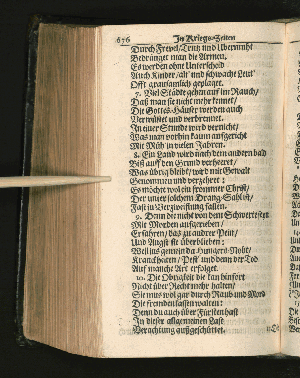 676 In Kriegs-Zeiten
Durch Frevel/Trutz und Ubermuht
Bedränget man die Armen,
Es werden ohne Unterscheid
Auch Kinder/alt' und schwache Leut'
Offt grausamlich geplaget.
7. Viel Städte gehen auff im Rauch/
Daß man sie nicht mehr kennet/
Die Gottes-Häuser werden auch
Verwüstet und verbrennet.
In einer Stund wird vernicht/
Was man vorhin kaum auffgericht
Mit Müh in vielen Jahren.
8. Ein Land wird nach dem andern bald
Biß auff den Grund verheeret/
Was übrig bleibt/ wird mit Gewalt
Genommen und verzehret:
Es möchte wol ein frommer Christ/
Der unter solchem Drangsahl ist/
Fast in Verzweifflung fallen.
9. Denn die nicht von dem Schwert seyn
Mit Morden auffgerieben/
Erfahren/ das zu andrer Pein/
Und Angst sie überblieben:
Weil ins gemein die Hungers-Noht/
Kranckheiten/ Pest und denn der Tod
Auf manche Art erfolget.
10. Die Obrigkeit die kan hinfort
Nicht über Recht mehr halten/
Sie muß wol gar durch Raub und Mord
Die frembden lassen walten:
Denn du auch über Fürsten hast
In dieser allgemeinen Last
Verachtung außgeschüttet.